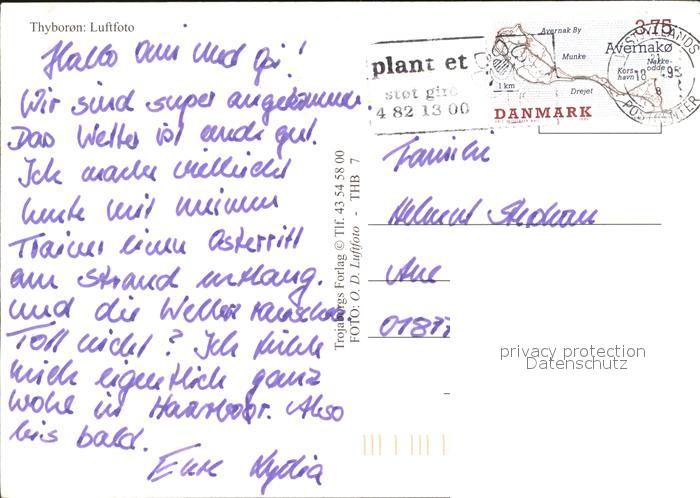 Thyborøn: Luftfoto
Hallo Omi und Opi!
Wir sind super angekommen.
Das Wetter ist auch gut.
Ich mache vielleicht
heute mit meinem
Trainer einen Osterritt
am Strand entlang.
und die Wellen rauschen.
Toll nicht? Ich fühle
mich eigentlich ganz
wohl in Haarboør. Also
bis bald.
Eure Lydia
Trojaborgs Forlag © Tlf. 43 54 58 00
FOTO: O. D. Luftfoto - THB 7
plant et
støt giro
4 82 13 00
3.75
Avernakø
Avernak By
Munke
Nakke-odde
Korshavn
Drejet
1 km
DANMARK
POSTCENTER
Familie
Helmut
Aue
privacy protection
Datenschutz